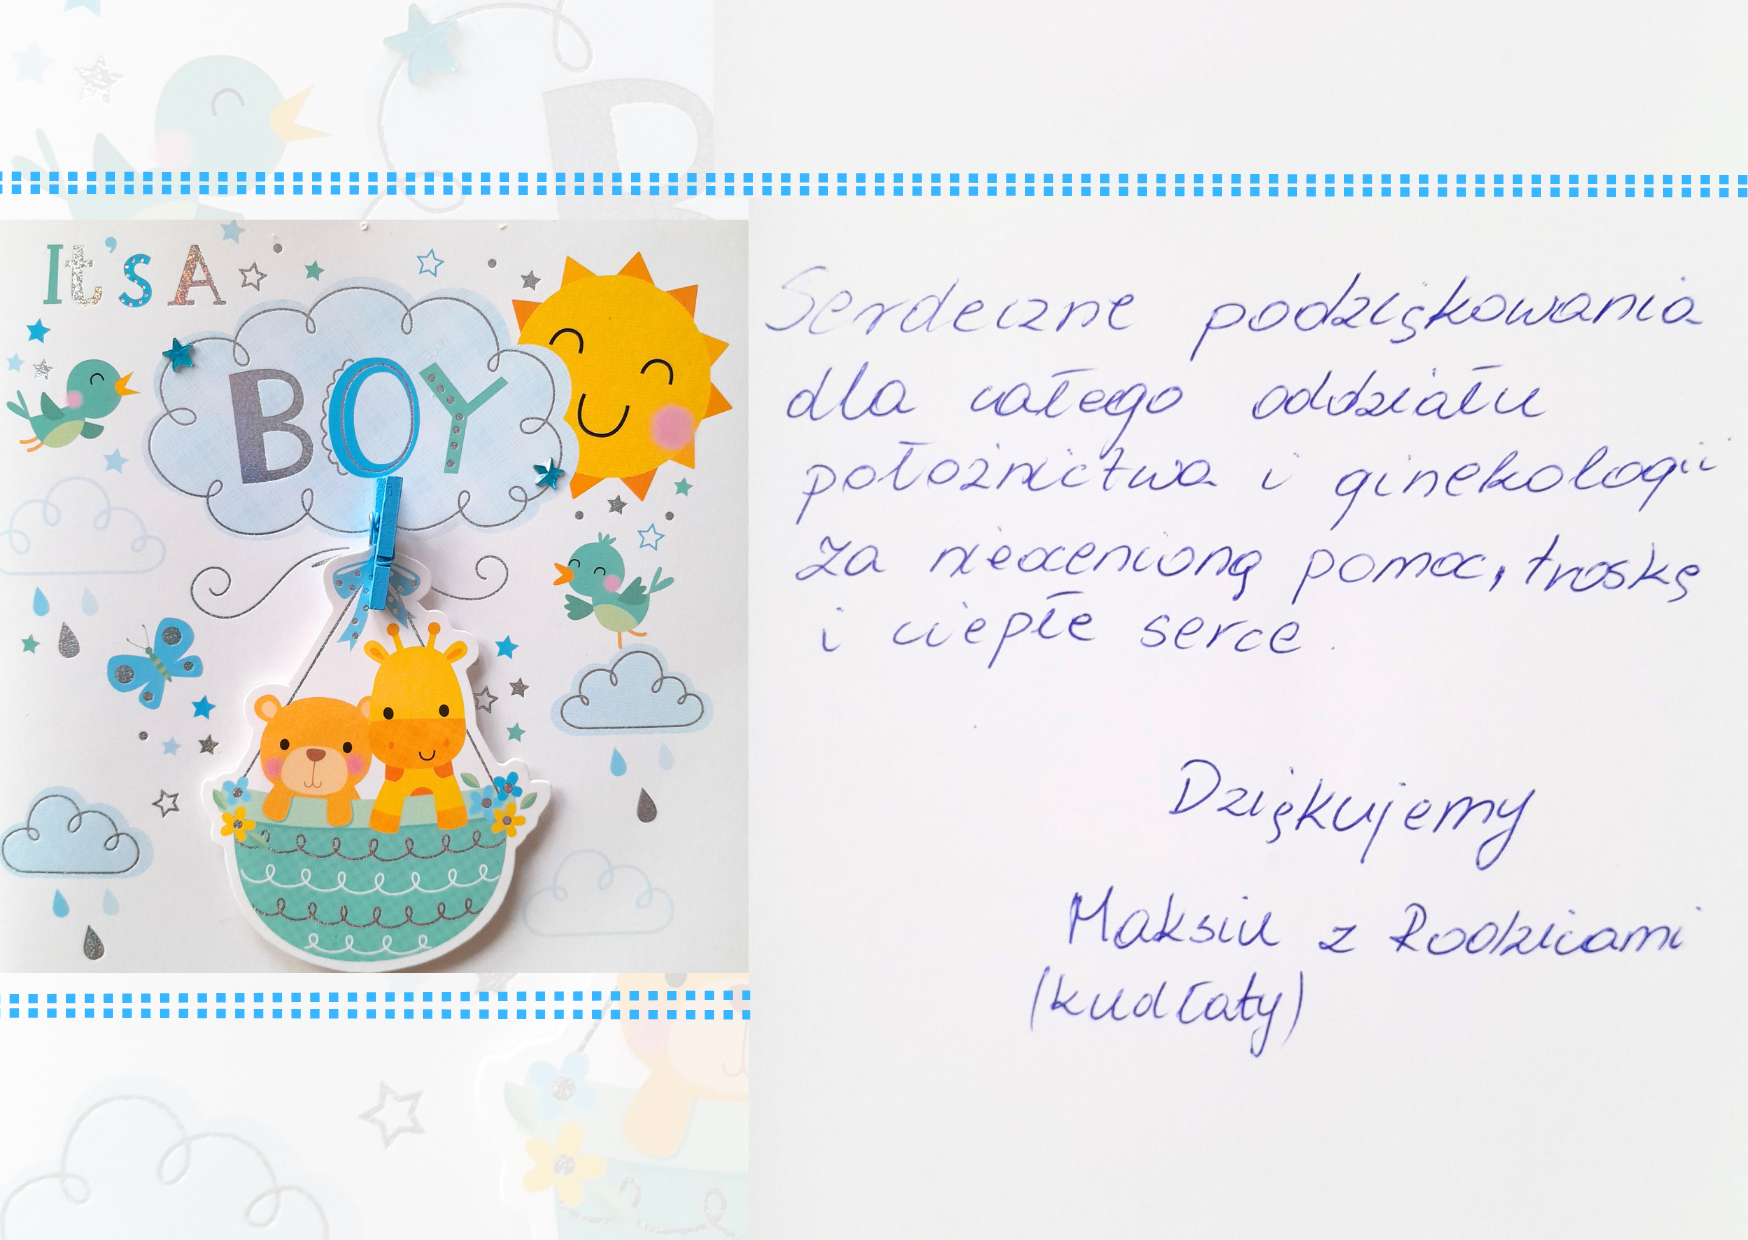 It's A
BOY
Serdeczne podziękowania
dla całego oddziału
położnictwa i ginekologii
za nieocenioną pomoc, troskę
i ciepłe serce.
Dziękujemy
Maksiu z Rodzicami
(kudłaty)